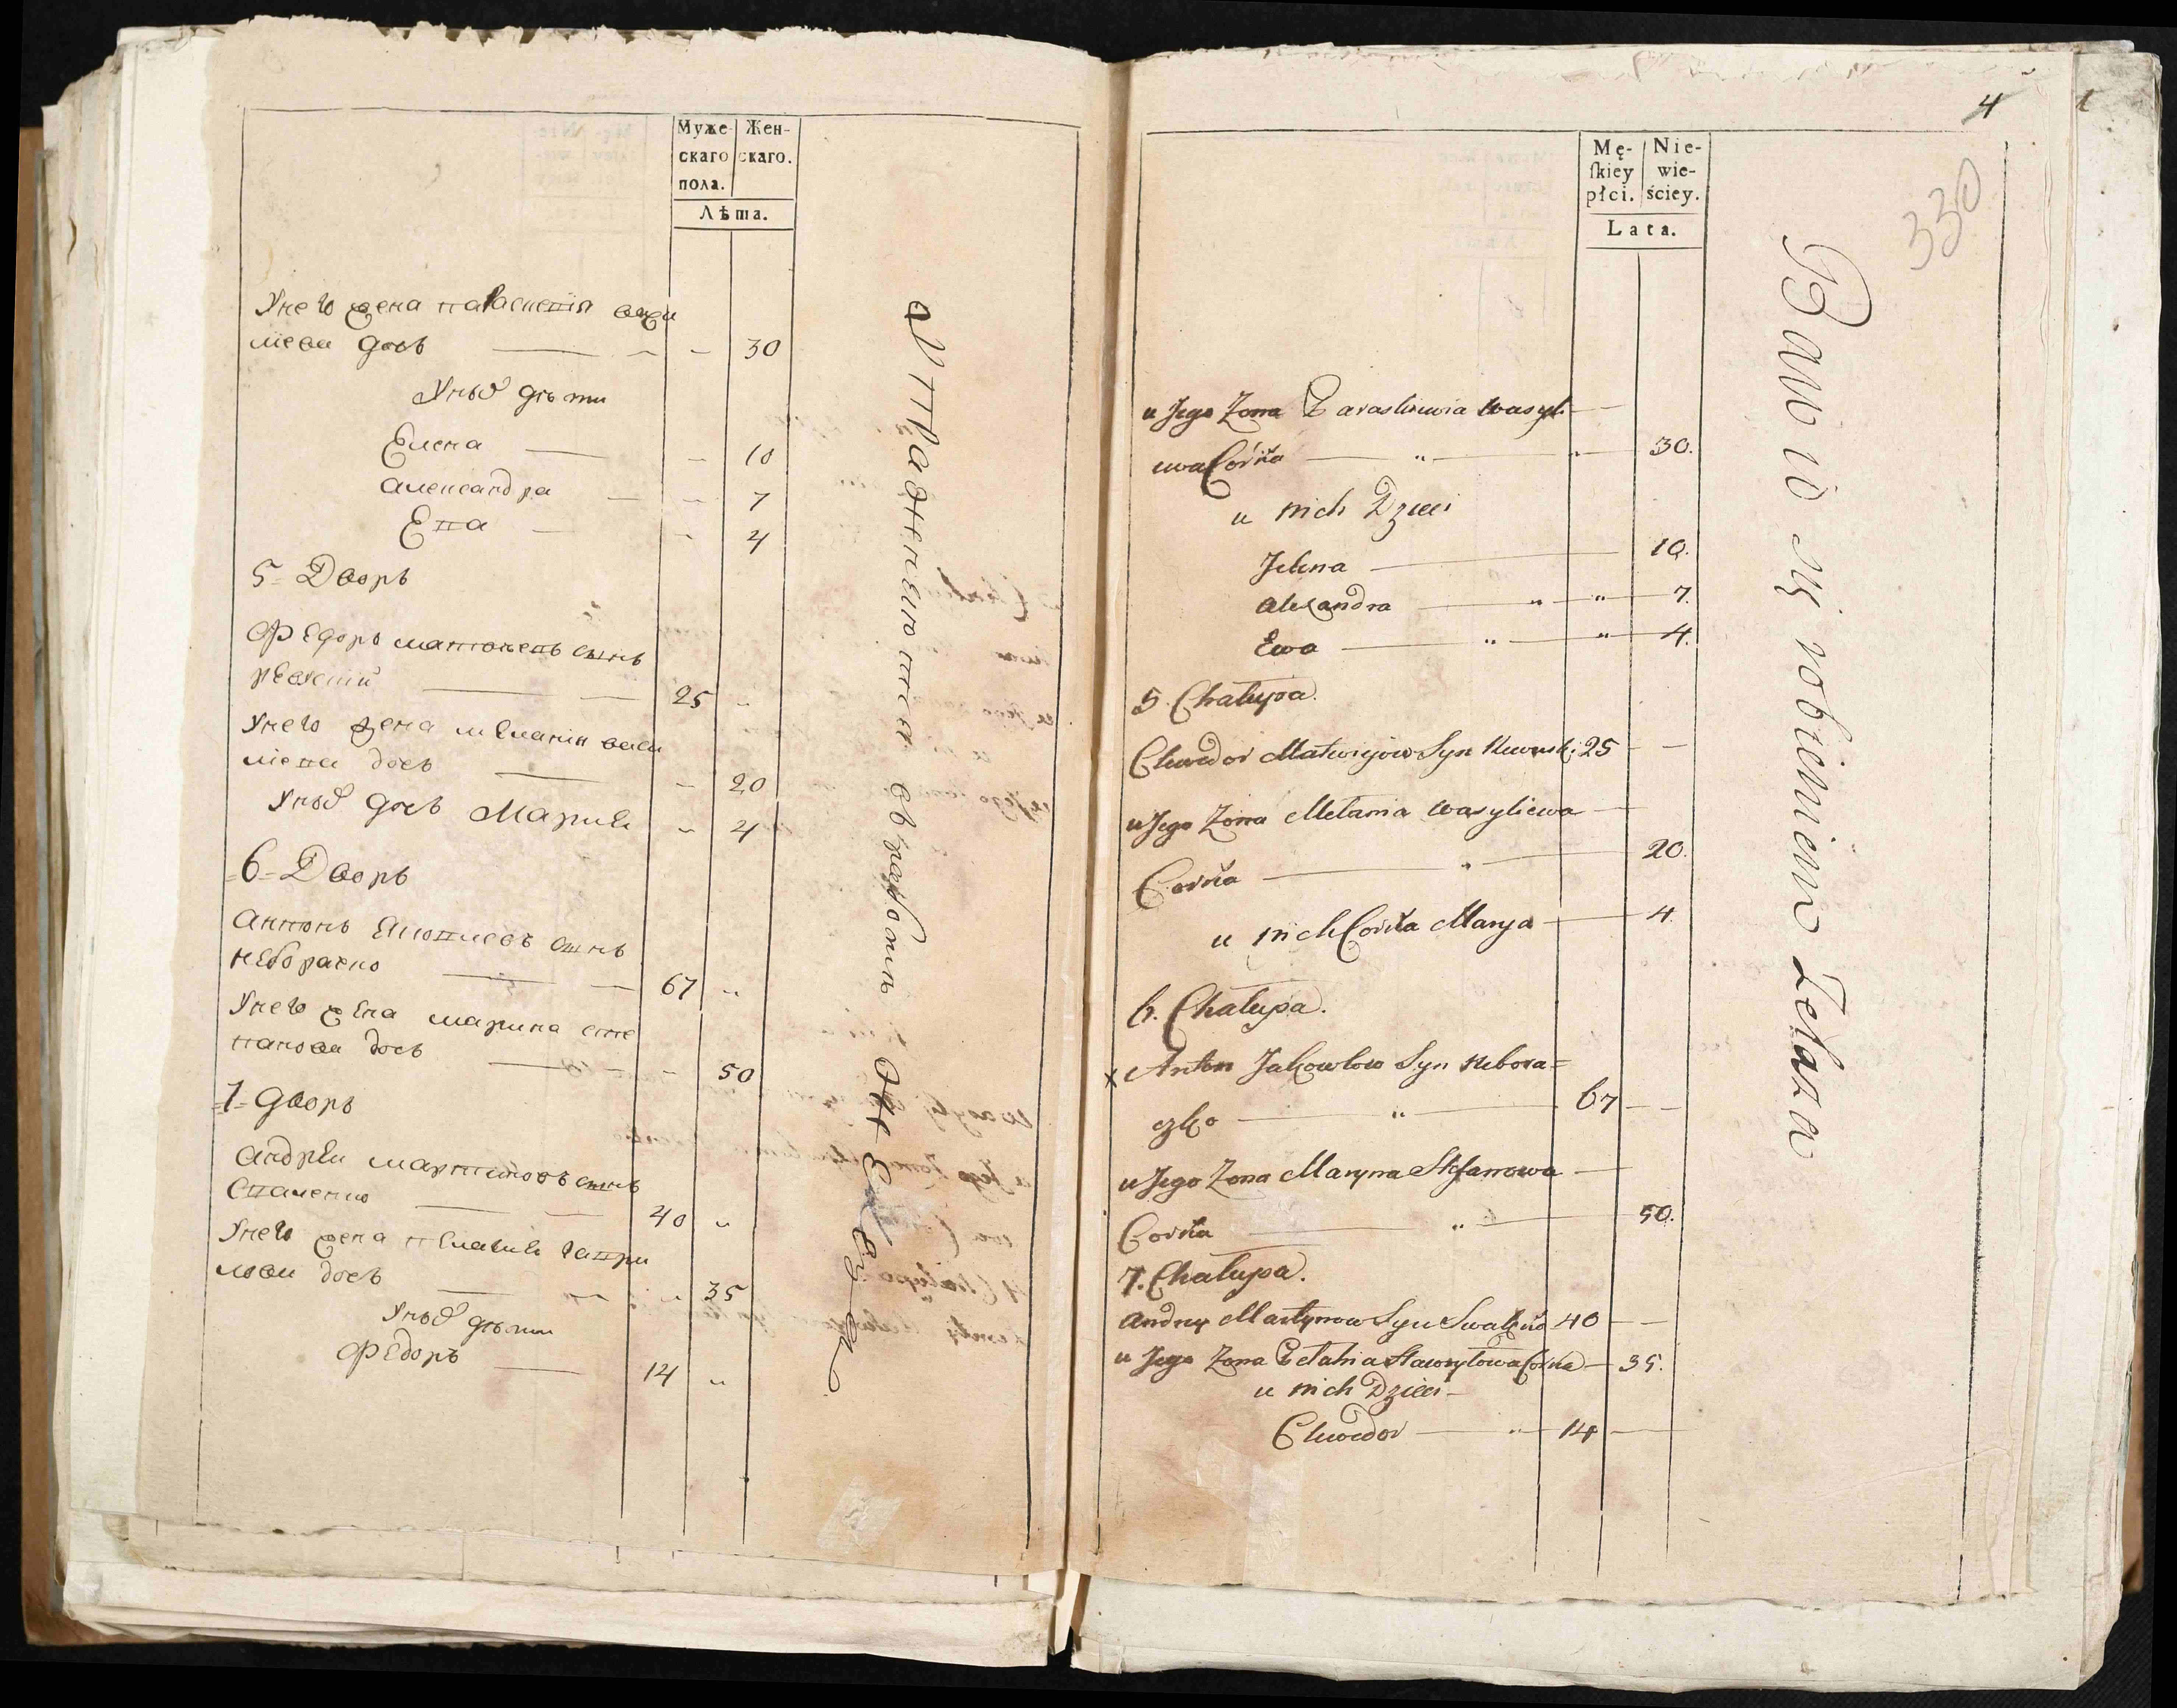 Муже-
скаго
пола.
Жен-
скаго.
Лѣта.
Унего жена параскевія васи
лiева дочь — — 30
Унихъ дѣти
Елена — — 10
александра — — 7
Ева — — 4
5 - Дворъ
Федоръ матвѣевъ сынъ
25 „
Унего жена меланія васи
лiева дочь — — 20
Унихъ дочь Марія „ 4
6 - Дворъ
антонъ сынъ
неборачко — — 67 „
Унего жена марина сте
панова дочь — — 50
7 - дворъ
андрей мартиновъ сынъ
40 „
Унего жена пелагия гаври
лова дочь — „ 35
Унихъ дѣти
Федоръ — 14 „
Упражняются въ работѣ
4
330
Mę-
ſkiey
płci.
Nie-
wie-
ściey.
Lata.
u Jego Żona Paraskiewia Wasyl-
ewa Corka — „ — „ — 30.
u nich Dzieci
Jelena — 10.
Alexandra — „ — „ — 7.
Ewa — „ — „ — 4.
5. Chałupa.
Chwedor Matwiyow Syn 25 — —
u Jego Żona Melania Wasyliewa —
Corka — „ — 20.
u nich Corka Marya — 4.
6. Chałupa.
x Anton Jakowlow Syn Nebora=
czko — „ — 67 — —
u Jego Żona Maryna Stefanowa —
Corka — „ — 50.
7. Chałupa.
Andrey Martynow Syn 40 — —
u Jego Żona Pelahia Hawryłowa Corka — 35.
u nich Dzieci —
Chwedor — „ — 14 —
Bawią się robieniem Żelaza